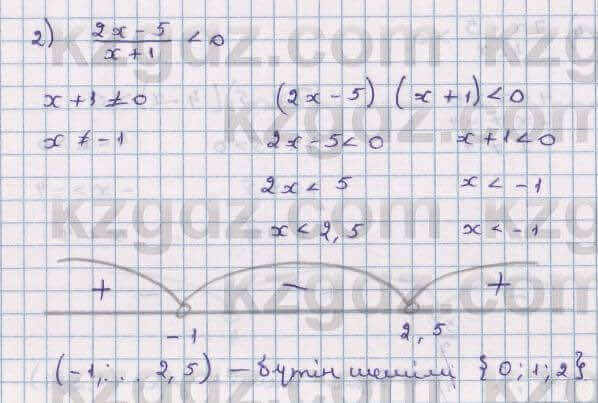 2) (2x - 5)/(x + 1) < 0
x + 1 ≠ 0 (2x - 5) (x + 1) < 0
x ≠ -1 2x - 5 < 0 x + 1 < 0
2x < 5 x < -1
x < 2,5 x < -1
+ - +
-1 2,5
(-1; ... 2,5) - бүтін шешімі {0; 1; 2}
kzgdz.com